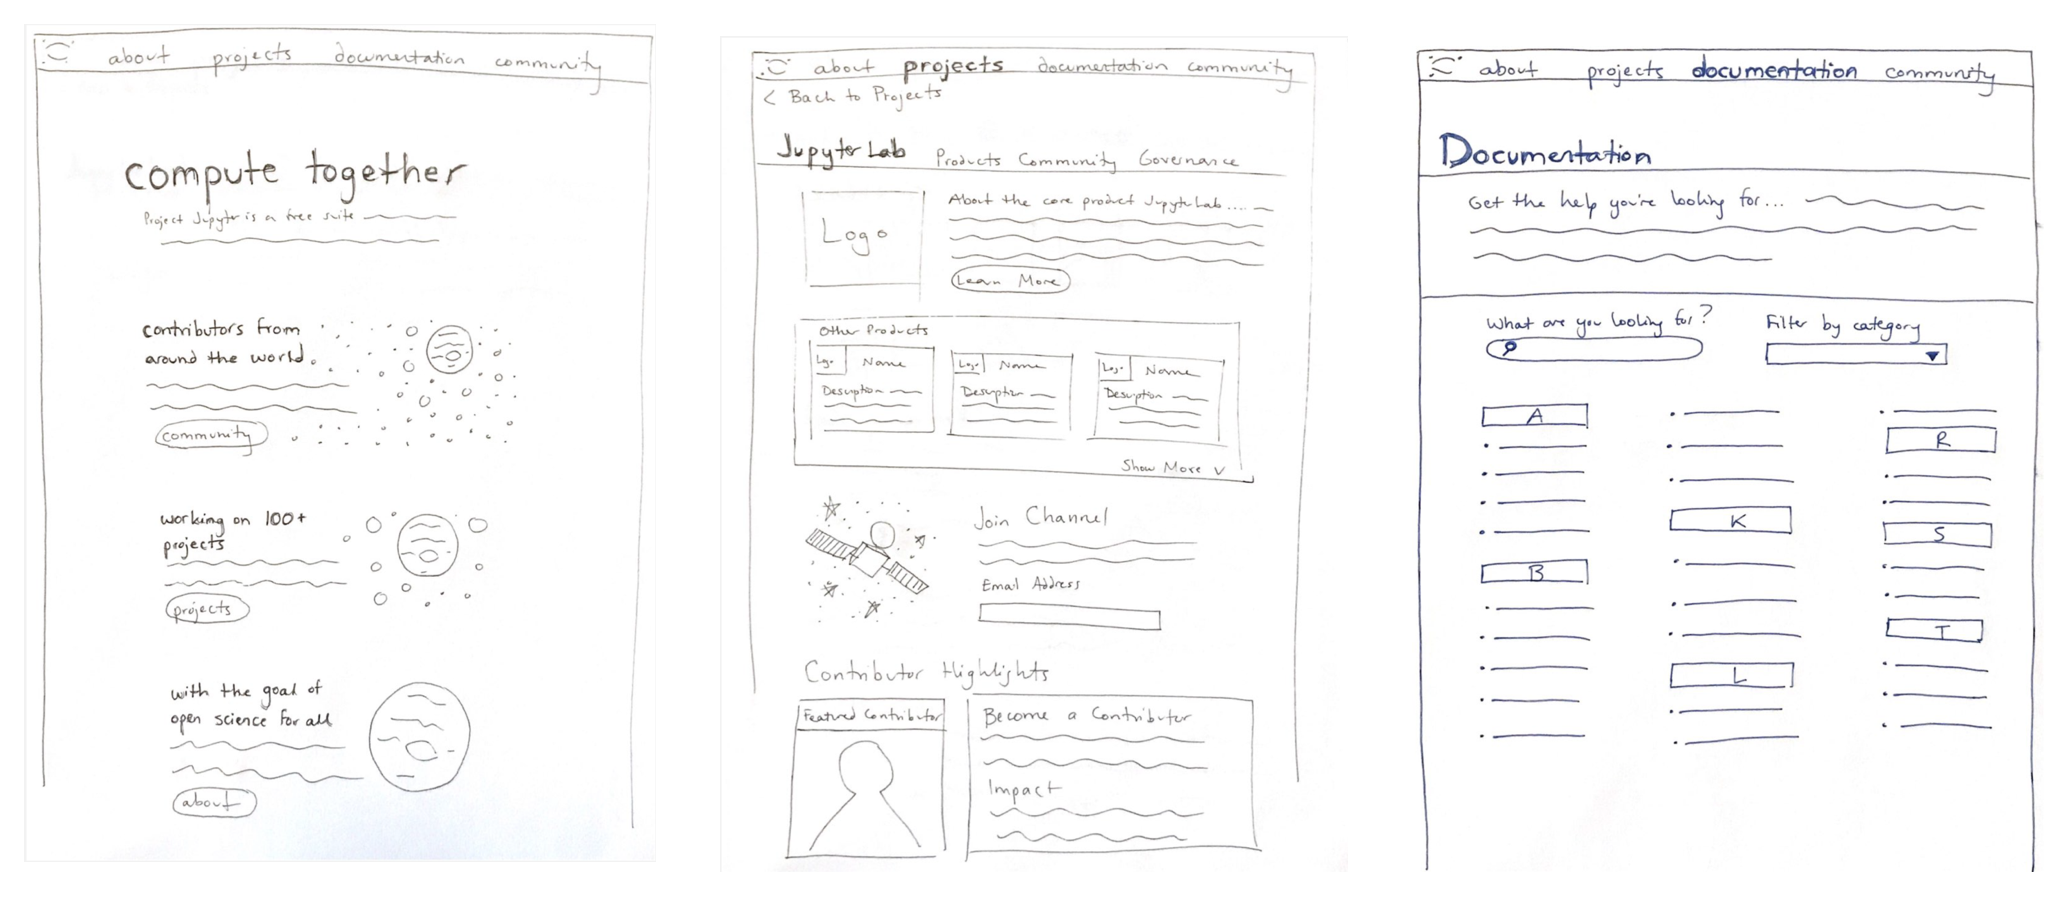 about projects documentation community
compute together
Project Jupyter is a free suite
contributors from
around the world.
community
working on 100+
projects
projects
with the goal of
open science for all
about
about projects documentation community
< Back to Projects
Jupyter Lab Products Community Governance
Logo
About the core product JupyterLab....
Learn More
Other Products
Logo Name
Desuption
Logo Name
Desuption
Logo Name
Desuption
Show More v
Join Channel
Email Address
Contributor Highlights
Featured Contributor
Become a Contributor
Impact
about projects documentation community
Documentation
Get the help you're looking for...
What are you looking for?
Filter by category
A
B
K
L
R
S
T